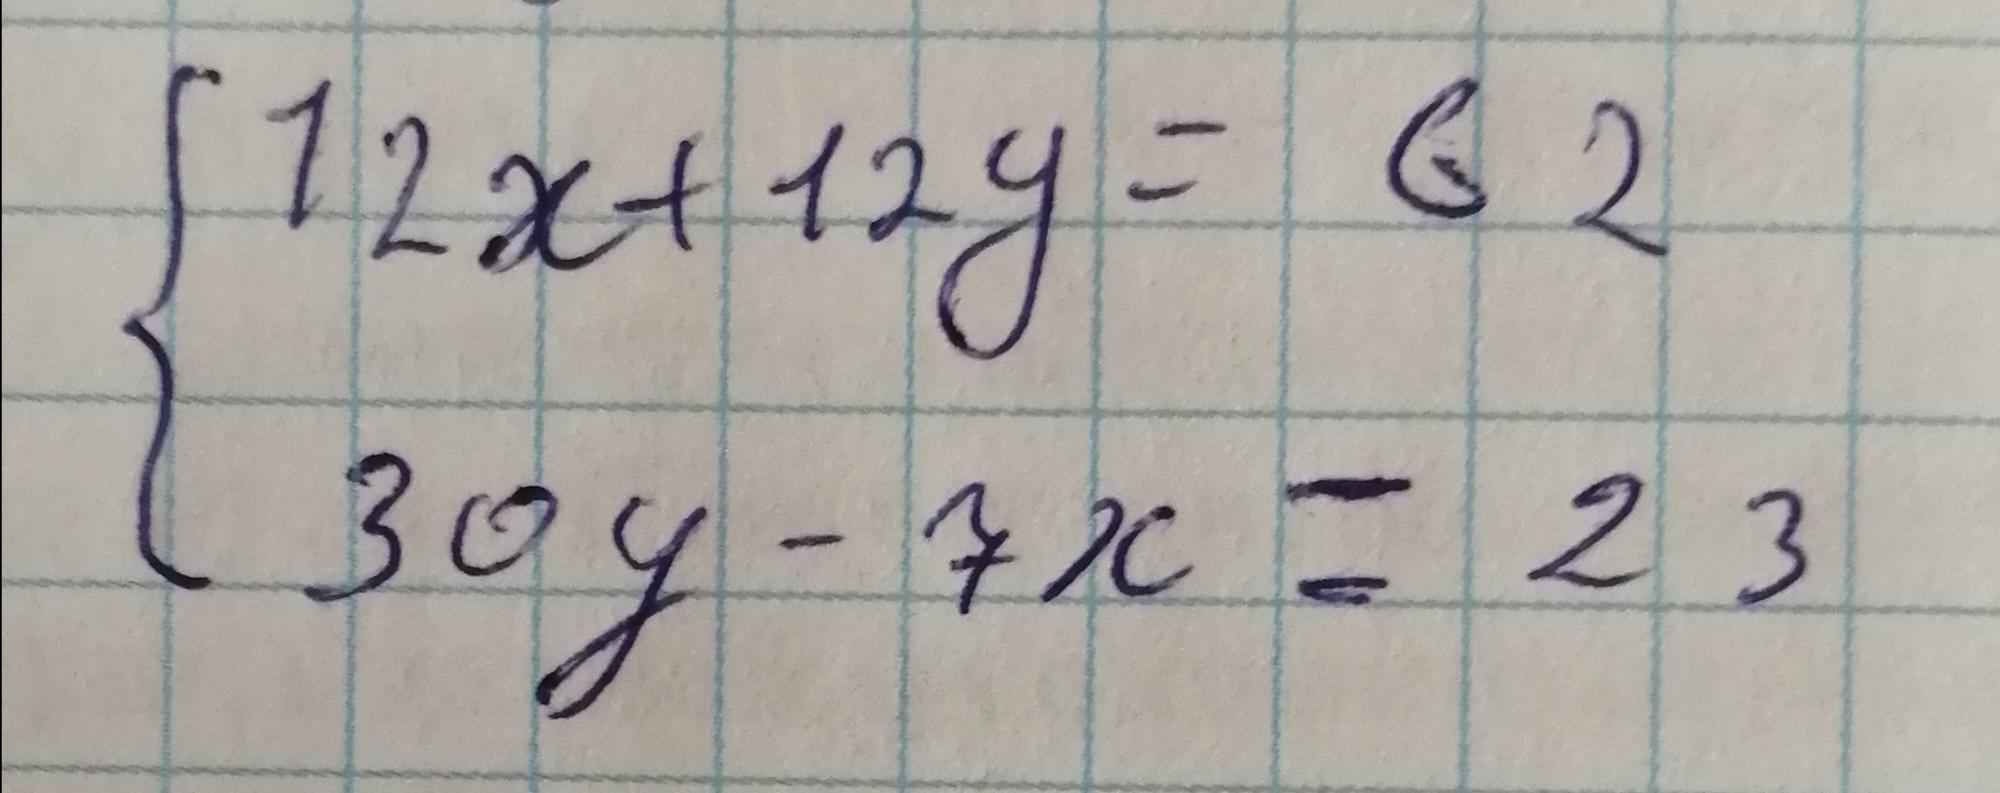 12x+12y= 62
30y-7x=23